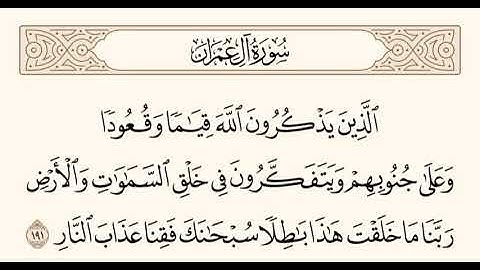 سُورَةُ آلِ عِمْرَان
الَّذِينَ يَذْكُرُونَ اللَّهَ قِيَامًا وَقُعُودًا
وَعَلَىٰ جُنُوبِهِمْ وَيَتَفَكَّرُونَ فِي خَلْقِ السَّمَاوَاتِ وَالْأَرْضِ
رَبَّنَا مَا خَلَقْتَ هَٰذَا بَاطِلًا سُبْحَانَكَ فَقِنَا عَذَابَ النَّارِ ١٩١